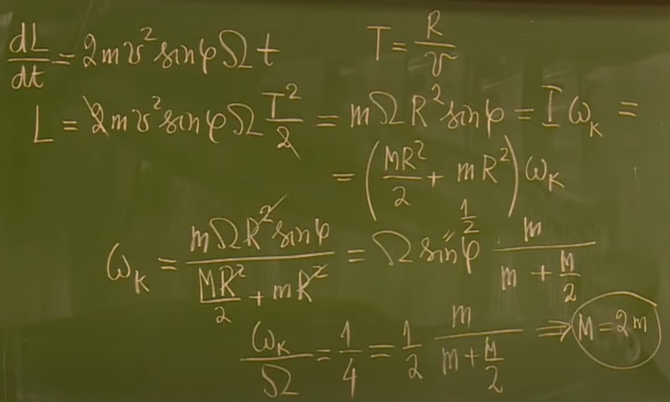 dL/dt = 2mv² sinφ Ω t    T = R/v
L = 2mv² sinφ Ω T²/2 = mΩR² sinφ = I ω_K =
= (MR²/2 + mR²) ω_K
ω_K = mΩR² sinφ / (MR²/2 + mR²) = Ω sinφ (1/2) m / (m + M/2)
ω_K/Ω = 1/4 = 1/2 m / (m + M/2) ⇒ M = 2m